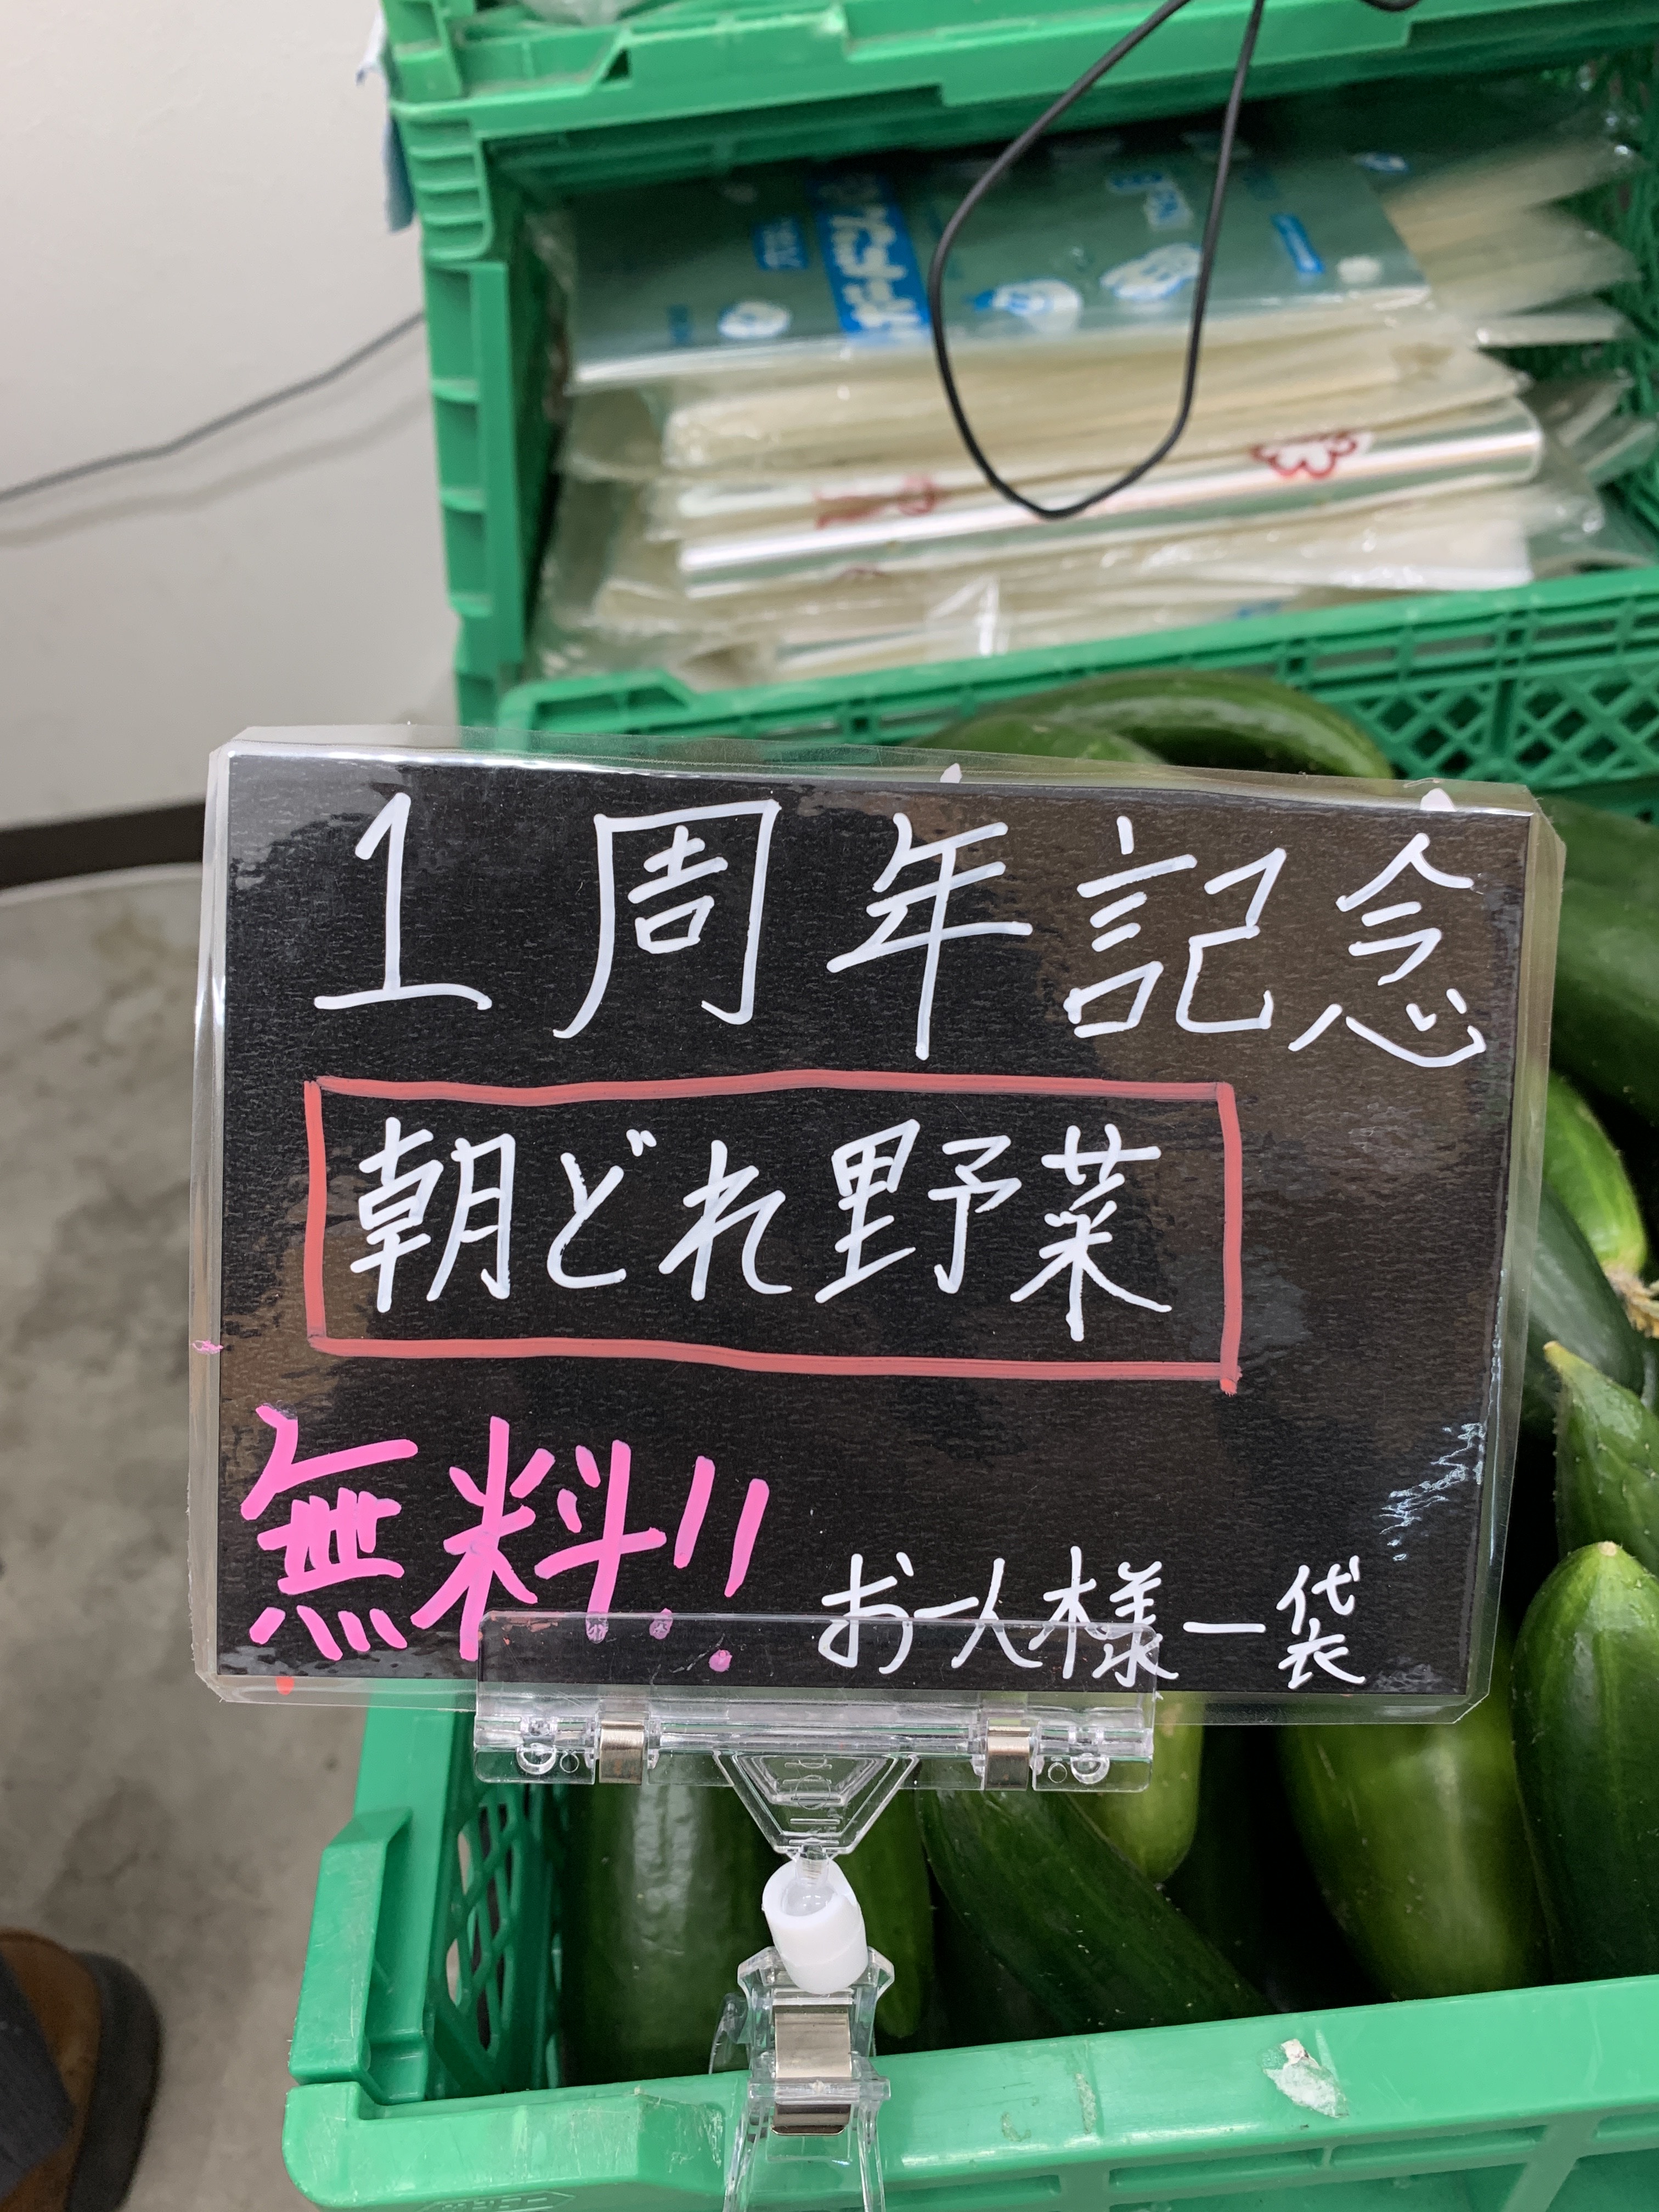 1周年記念
朝どれ野菜
無料!!
お一人様一袋